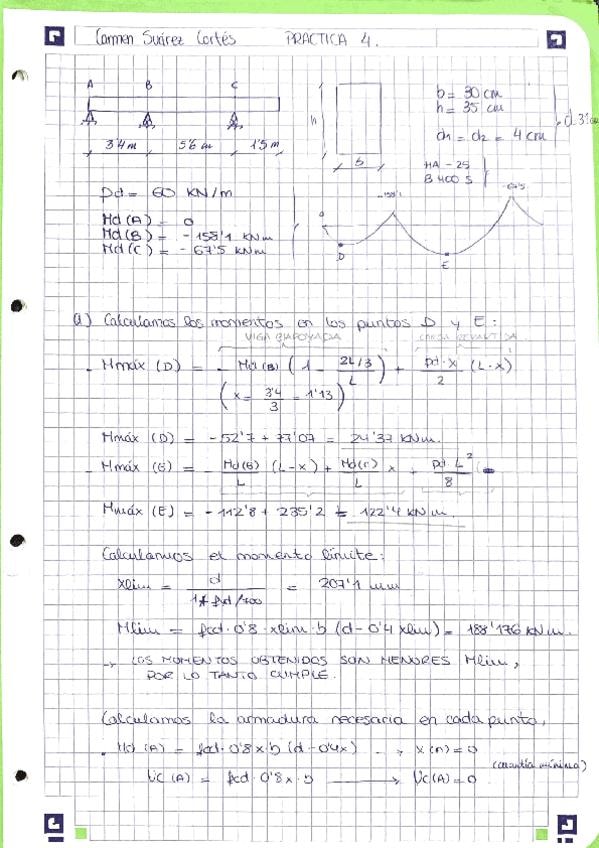 Carmen Suárez Cortés PRÁCTICA 4.
A B C
3'4 m 5'6 m 1'5 m
h
b
b = 30 cm
h = 35 cm
d1 = d2 = 4 cm
HA - 25
B 400 S
Pd = 60 KN/m
Md (A) = 0
Md (B) = - 158'1 KNm
Md (C) = - 67'5 KNm
D
E
a) Calculamos los momentos en los puntos D y E:
VIGA BIAPOYADA
· Mmáx (D) = - Md (B) ( 1 - 2L/3 / L ) + Pd · x / 2 (L - x)
( x = 3'4 / 3 = 1'13 )
Mmáx (D) = - 52'7 + 77'07 = 24'37 KNm.
- Mmáx (E) = - Md(B) / L (L - x) + Md(C) / L x + Pd · L² / 8
Mmáx (E) = - 112'8 + 235'2 = 122'4 KNm.
Calculamos el momento límite:
xlim = d / 1 + fyd/700 = 207'1 mm
Mlim = fcd · 0'8 · xlim · b (d - 0'4 xlim) = 188'176 KNm.
→ LOS MOMENTOS OBTENIDOS SON MENORES Mlim,
POR LO TANTO CUMPLE.
Calculamos la armadura necesaria en cada punto,
· Md (A) = fcd · 0'8 x · b (d - 0'4x) → x (A) = 0
(cuantía mínima)
Uc (A) = fcd · 0'8 x · b → Uc (A) = 0